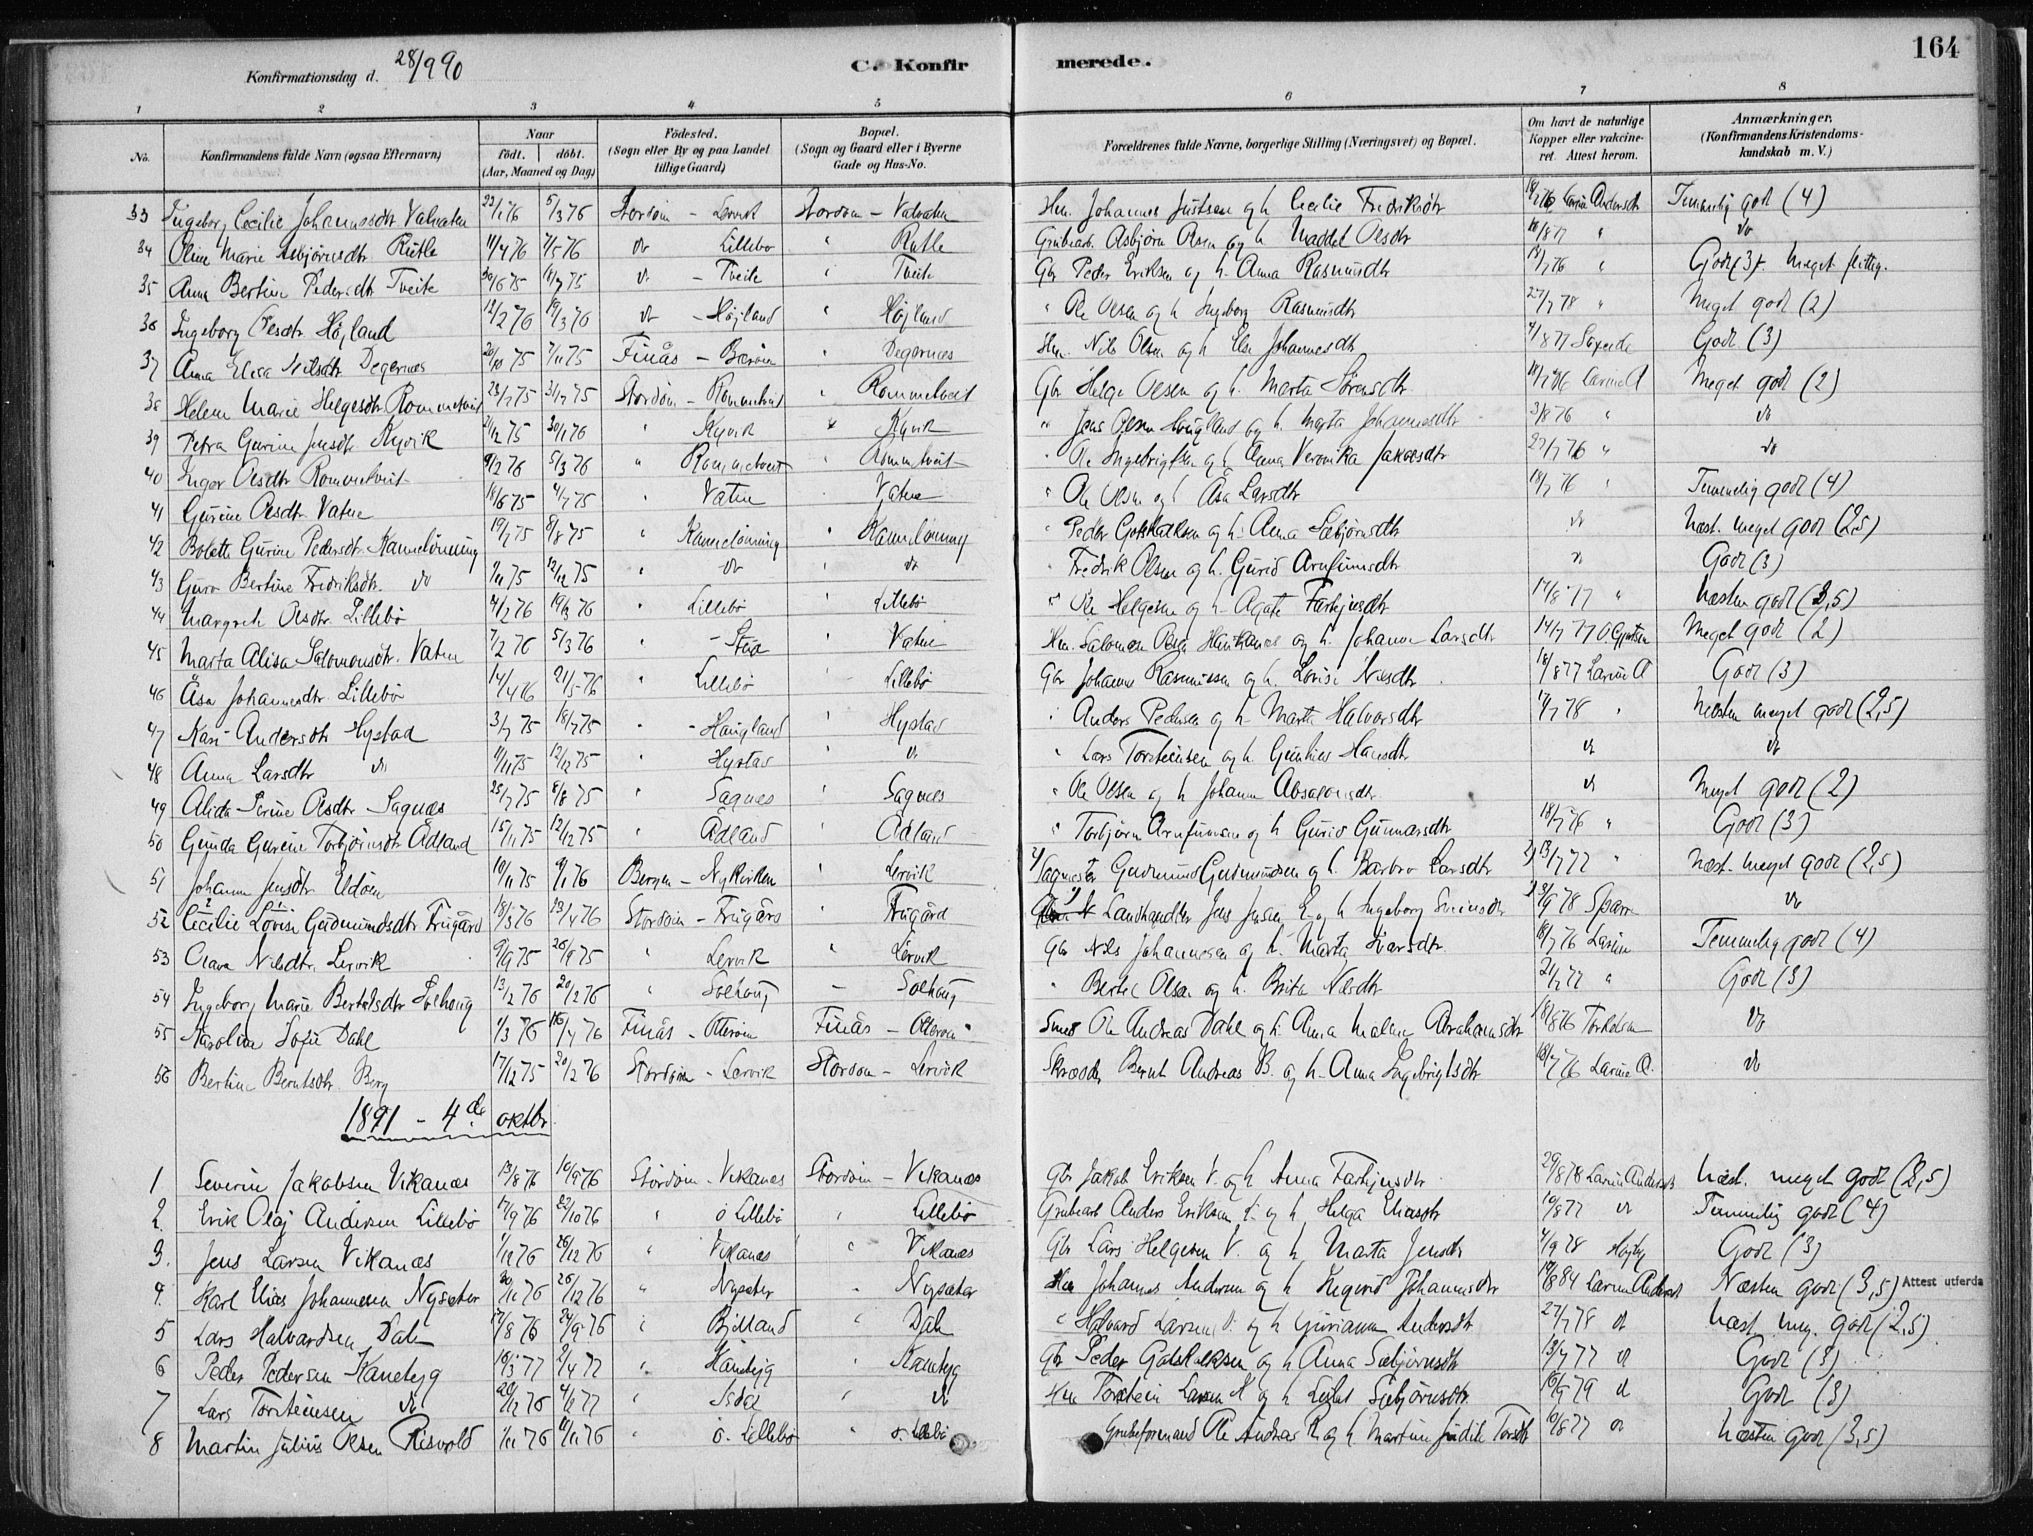 164
Konfirmationsdag d. 28/9 90
C. Konfirmerede.
1 2 3 4 5 6 7 8
No. Konfirmandens fulde Navn (ogsaa Efternavn) Naar født. døbt. (Aar, Maaned og Dag) Fødested. (Sogn eller By og paa Landet tillige Gaard) Bopæl. (Sogn og Gaard eller i Byerne Gade og Hus-No. Forældrenes fulde Navne, borgerlige Stilling (Næringsvei) og Bopæl. Om havt de naturlige Kopper eller vakcineret. Attest herom. Anmærkninger. (Konfirmandens Kristendomskundskab m. V.)
33 Ingeborg Cecilie Johannesdtr Valvatn 22/1 76 5/3 76 Stordøen - Lervik Stordøen - Valvatn Hm. Johannes Justsen og h. Cecilie Fredriksdtr Larine Andersdtr Temmelig godt (4)
34 Oline Marie Asbjørnsdtr Rutle 11/4 76 7/5 76 do Lillebø " Rutle Grubearb. Asbjørn Olsen og h. Maddel Olsdtr 18/8 77 " do
35 Anna Bertine Pedersdtr Tveite 30/6 75 11/7 75 do - Tveite " Tveite Gbr Peder Eriksen og h. Anna Rasmusdtr 18/7 76 " Godt (3) + meget flittig.
36 Ingeborg Olesdtr Højland 12/2 76 19/3 76 do - Højland " Højland " Ole Olsen og h Ingeborg Rasmusdtr 27/7 78 " Meget godt (2)
37 Anna Elisa Nilsdtr Degernes 20/10 75 7/11 75 Finås - Bærøen " Degernes Hm. Nils Olsen og h Else Johannesdtr 4/8 77 Godt (3)
38 Helene Marie Helgesdtr Rommetveit 23/7 75 31/7 75 Stordøen - Rommetveit " Rommetveit Gbr Helge Olsen og h. Marta Sørensdtr 18/7 76 Larine A Meget godt (2)
39 Petra Gurine Jensdtr Kyvik 21/12 75 30/1 76 " Kyvik " Kyvik " Jens Olsen Hougland og h. Marta Johannesdtr 3/8 76 " do
40 Inger Olsdtr Rommetveit 9/2 76 5/3 76 " Rommetveit " Rommetveit " Ole Ingebrigtsen og h Anna Veronika Jakobsdtr 27/7 76 " do
41 Gurine Olsdtr Vatne 18/6 75 4/7 75 " Vatne " Vatne " Ole Olsen og h Åsa Larsdtr 18/7 76 " Temmelig godt (4)
42 Bolette Gurine Pedersdtr. Kanneløning 19/7 75 8/8 75 " Kanneløning " Kanneløning " Peder Gotskalksen og h. Anna Sæbjørnsdtr do Næst. meget godt (2,5)
43 Guro Bertine Fredriksdtr. do 1/11 75 12/12 75 " do " do " Fredrik Olsen og h. Gurid Arnfinnsdtr do Godt (3)
44 Margrete Olsdtr. Lillebø 4/2 76 19/3 76 " Lillebø " Lillebø " Ole Helgesen og h. Agate Torkjelsdtr 17/8 77 " Næsten godt (3,5)
45 Marta Alisa Salomonsdtr. Vatne 7/2 76 5/3 76 " - Stua " Vatne Hm. Salomon Olsen og h. Johanne Larsdtr 14/7 77 Meget godt (2)
46 Åsa Johannesdtr. Lillebø 14/4 76 21/5 76 " Lillebø Lillebø Gbr Johannes Rasmussen og h. Lovise Nilsdtr 18/8 77 Larine A Godt (3)
47 Kari Andersdtr Hystad 3/7 75 18/7 75 " - Haugland " Hystad " Anders Pedersen og h. Marta Halvorsdtr 17/7 78 " Næsten meget godt (2,5)
48 Anna Larsdtr do 11/11 75 12/12 75 " Hystad " do " Lars Torsteinsen og h. Hansdtr do do
49 Alida Serine Olsdtr Sagnæs 25/7 75 8/8 75 " Sagnæs Sagnæs " Ole Olsen og h Johanne Absalonsdtr. do Meget godt (2)
50 Gunda Gurine Torbjørnsdtr Ådland 15/11 75 12/12 75 " Ådland " Ådland " Torbjørn Arnfinnsen og h Gurid Gunnarsdtr 18/7 76 " Godt (3)
51 Johanne Jensdtr Eldøen 10/11 75 9/1 76 Bergen - Nykirken " Lervik Gudmund Gudmundsen og h. Barbro Larsdtr 13/7 77 " Næst. meget godt (2,5)
52 Cecilie Lovise Gudmundsdtr Frugård 18/3 76 13/4 76 Stordøen - Frugård " Frugård Landhandler Jens Jensen E. og h Ingeborg Sveinsdtr 3/9 78 Sparre do
53 Olava Nilsdtr. Lervik 9/9 75 26/9 75 " Lervik " Lervik Gbr Nils Johannesen og h. Marta Ivarsdtr. 18/7 76 Larine Temmelig godt (4)
54 Ingeborg Marie Bertelsdtr Solhoug 13/2 76 20/2 76 " Solhoug - Solhoug " Bertel Olsen og h. Brita Nilsdtr 21/7 77 " Godt (3)
55 Karoline Sofie Dahl 1/3 76 16/4 76 Finås - Otterøen Finås - Otterøen Smed Ole Andreas Dahl og h. Anna Malene Abrahamsdtr 18/8 76 Torkelsen do
56 Bertine Berntsdtr. Berg 17/12 75 20/2 76 Stordøen - Lervik Stordøen - Lervik Skrædder Bernt Andreas B. og h. Anna Ingebrigtsdtr 18/7 76 Larine A. do
1891 - 4de oktbr.
1 Severin Jakobsen Vikanæs 13/8 76 10/9 76 Stordøen - Vikanæs Stordøen - Vikanæs Gbr Jakob Eriksen V. og h Anna Torkjelsdtr 29/8 78 Larine Andersdt Næst. meget godt (2,5)
2. Erik Olaj Andersen Lillebø 17/9 76 22/10 76 " ø Lillebø " Lillebø Grubearb Anders Eriksen L. og h Helga Eliasdtr 10/8 77 do Temmelig godt (4)
3. Jens Larsen Vikanæs 1/12 76 26/12 76 " Vikanæs " Vikanæs Gbr Lars Helgesen V. og h. Marta Jensdtr 4/9 78 Godt (3)
4. Karl Elias Johannesen Nysæter 20/11 76 26/12 76 " Nysæter " Nysæter Hm Johannes Andersen og h Ingerid Johannesdtr 19/8 84 Larine Andersdt Næsten godt (3,5) Attest utferda
5 Lars Halvardsen Dale 17/8 76 24/9 76 " Bjelland " Dale " Halvard Larsen D. og h Gurianna Andersdtr 27/7 78 do Næst. meg. godt (2,5)
6 Peder Pedersen Kaneløyg 16/3 77 2/4 77 " Kaneløyg " Kaneløyg Gbr Peder Gotskalksen og h Anna Sæbjørnsdtr 13/7 77 do Godt (3)
7 Lars Torsteinsen do 20/12 76 4/2 77 " " do Hm Torstein Larsen K og h Sæbjørnsdtr. 16/9 79 do Godt (3)
8 Martin Julius Olsen Risvold 1/11 76 11/11 76 " ø. Lillebø " ø. Lillebø Grubeformand Ole Andreas R og h Martine Judite Torsdtr 10/8 77 do Næsten godt (3,5)